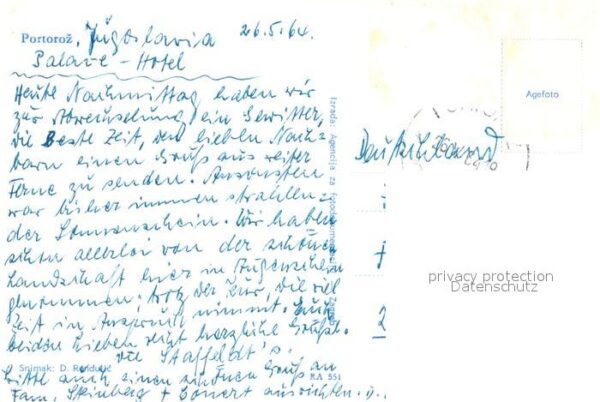 Portorož, Jugoslavia 26.5.64.
Palace-Hotel
Heute Nachmittag haben wir
zur Abwechselung ein Gewitter,
die beste Zeit, den lieben Nach-
barn einen Gruß aus weiter
Ferne zu senden. Ansonsten
war bisher immer strahlen-
der Sonnenschein. Wir haben
schon allerlei von der schönen
Landschaft hier in Augenschein
genommen, trotz der Kur, die viel
Zeit in Anspruch nimmt. Euch
beiden Lieben recht herzliche Grüße.
die Staffeldt's.
Bitte auch einen schönen Gruß an
Fam. Steinberg + ausrichten.
Snimak: D.
KA 551
Izrada: Agencija za
Agefoto
Deutschland
privacy protection
Datenschutz